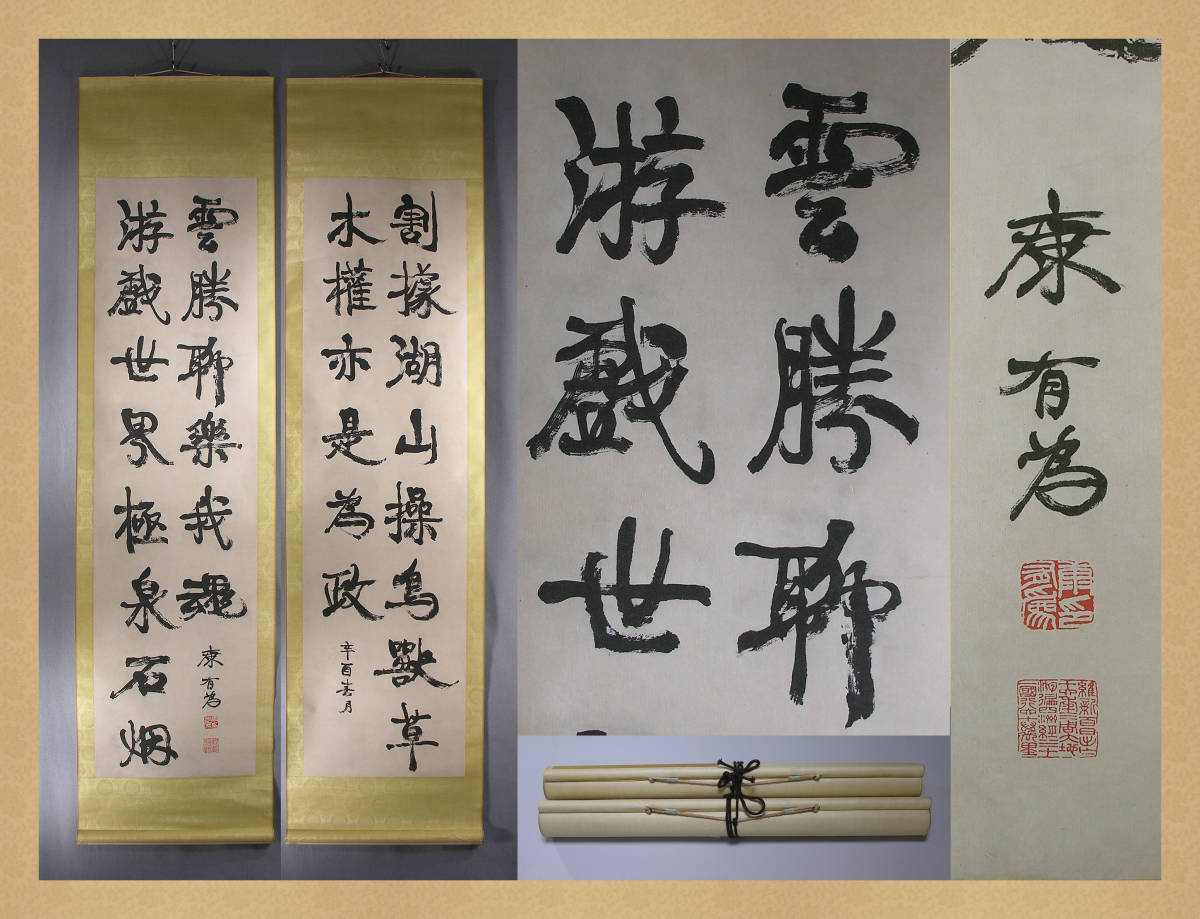 割據湖山操鳥獸草
木權亦是為政
辛酉春月
游戲世界極泉石烟
雲勝聊樂我魂
康有為
游戲世
雲勝聊
康有為
康印有為